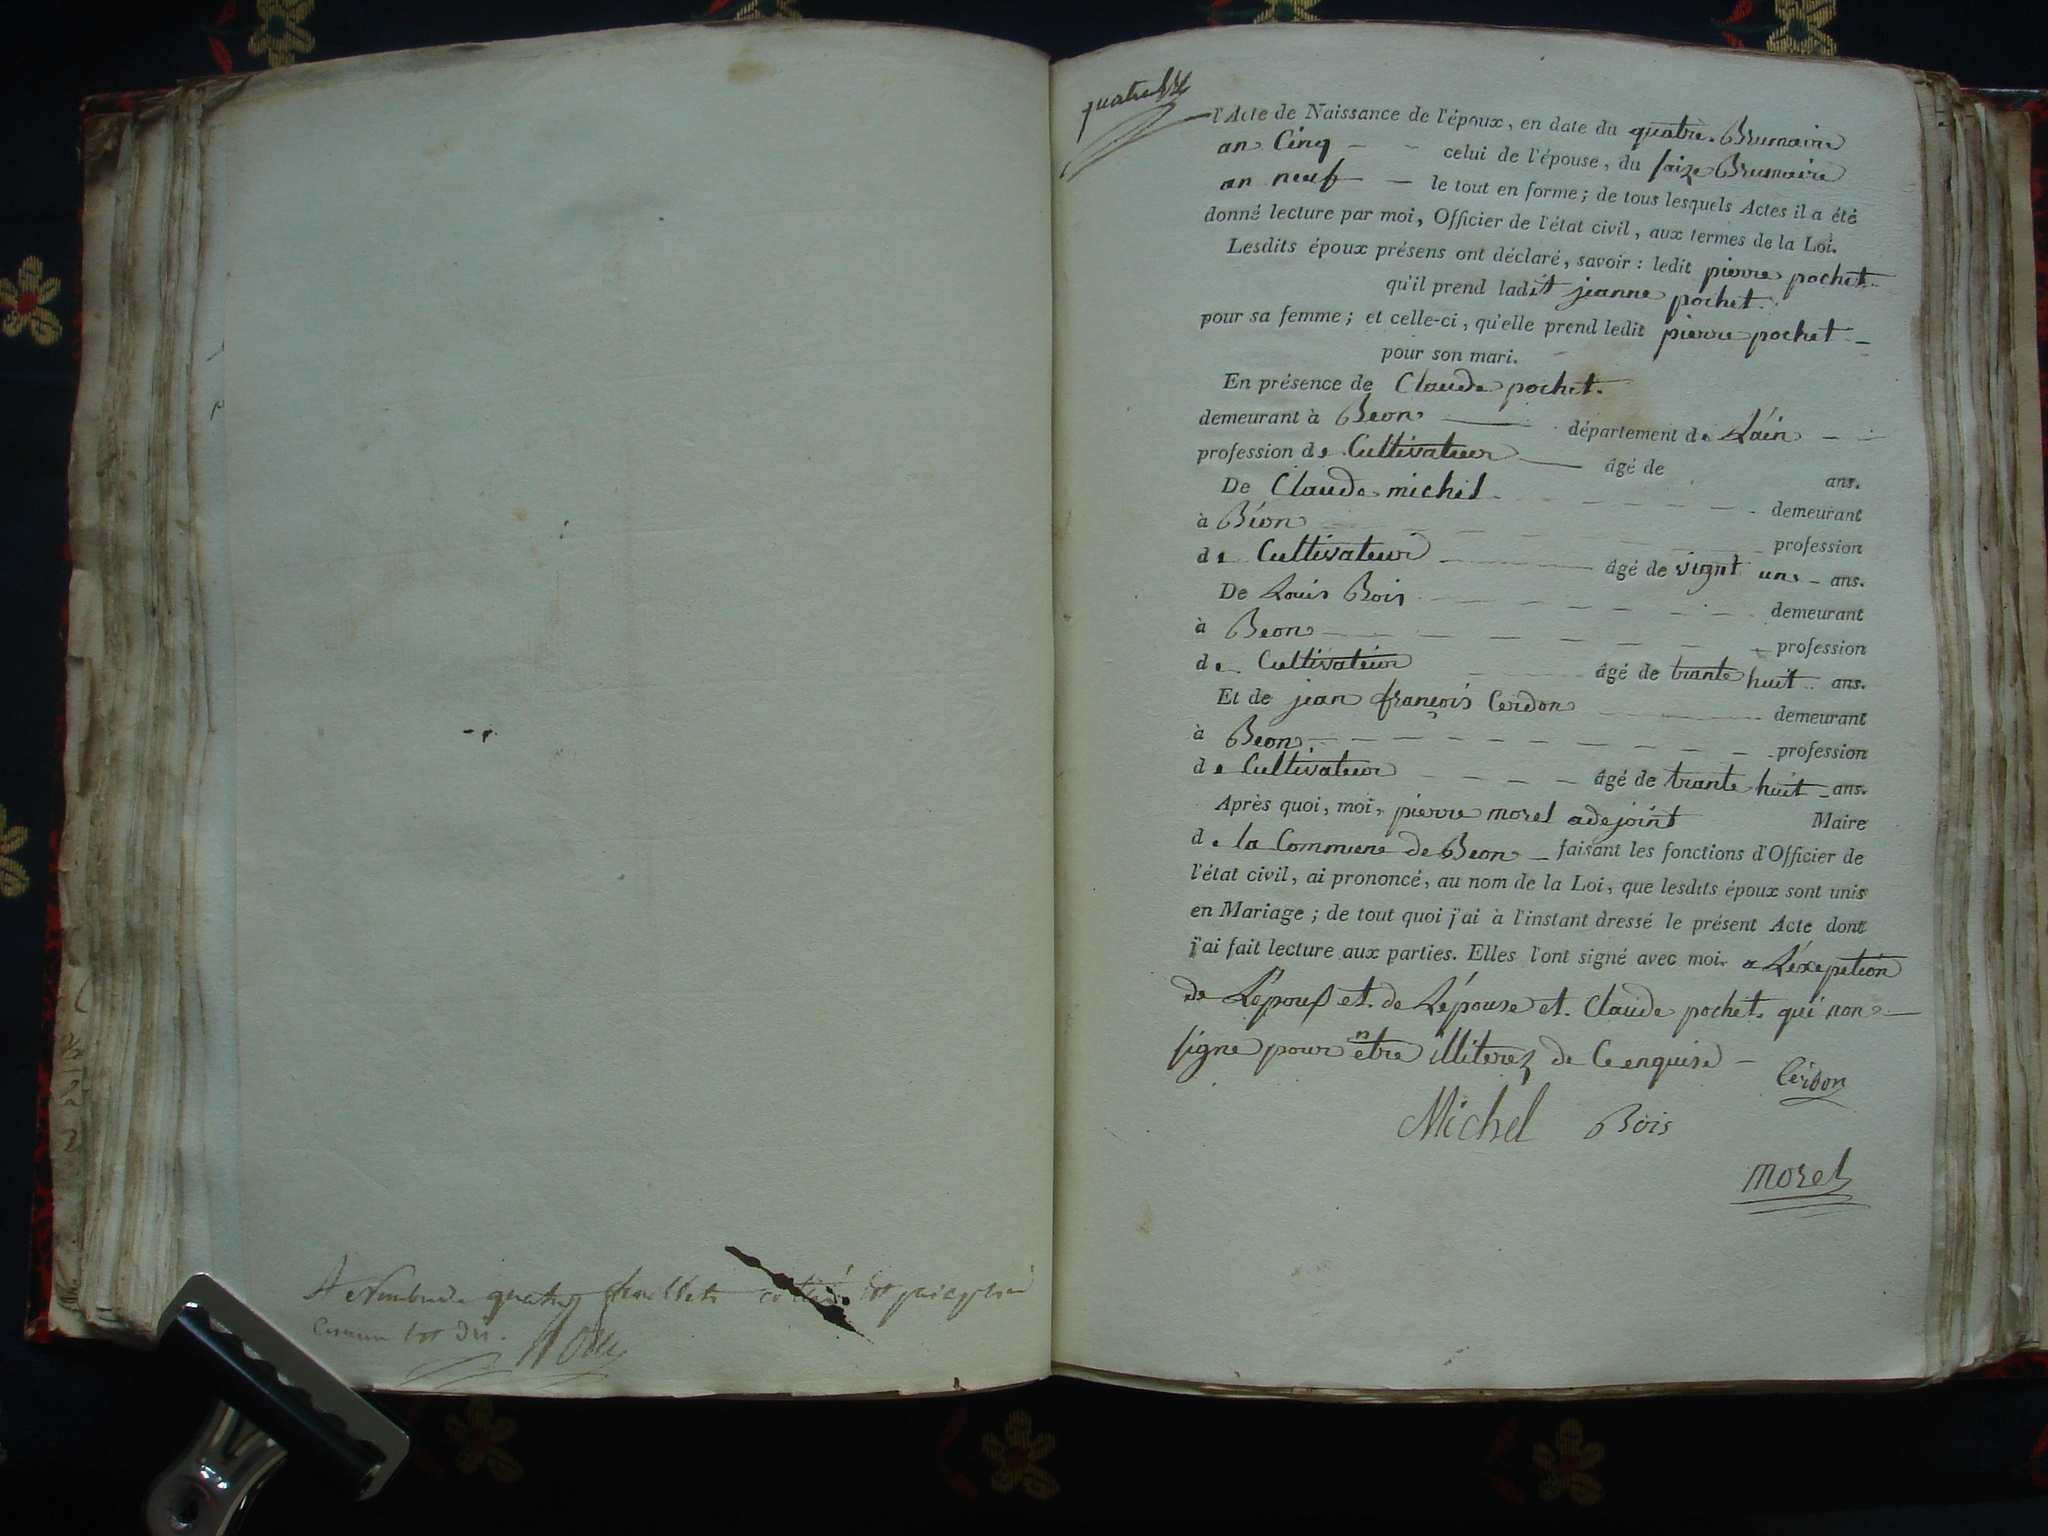 quatre feuillets
l'Acte de Naissance de l'époux, en date du quatre Brumaire
an Cinq - - celui de l'épouse, du saize Brumaire
an neuf - le tout en forme; de tous lesquels Actes il a été
donné lecture par moi, Officier de l'état civil, aux termes de la Loi.
Lesdits époux présens ont déclaré, savoir : ledit pierre pochet
qu'il prend ladit jeanne pochet
pour sa femme; et celle-ci, qu'elle prend ledit pierre pochet -
pour son mari.
En présence de Claude pochet.
demeurant à Beon département de Láin - -
profession de Cultivateur âgé de ans.
De Claude michel demeurant
à Béon profession
de Cultivateur âgé de vignt une - ans.
De Louis Bois demeurant
à Beon profession
de Cultivateur âgé de trante huit ans.
Et de jean françois Cerdon demeurant
à Beon profession
de Cultivateur âgé de trante huit - ans.
Après quoi, moi, pierre morel adejoint Maire
de la Commune de Beon - faisant les fonctions d'Officier de
l'état civil, ai prononcé, au nom de la Loi, que lesdits époux sont unis
en Mariage; de tout quoi j'ai à l'instant dressé le présent Acte dont
j'ai fait lecture aux parties. Elles l'ont signé avec moi. a Léxepetion
de Lépoux et de Lépouse et Claude pochet qui non
signe pour n être illiterez de Ce enquise -
Cerdon
Michel Bois
morel